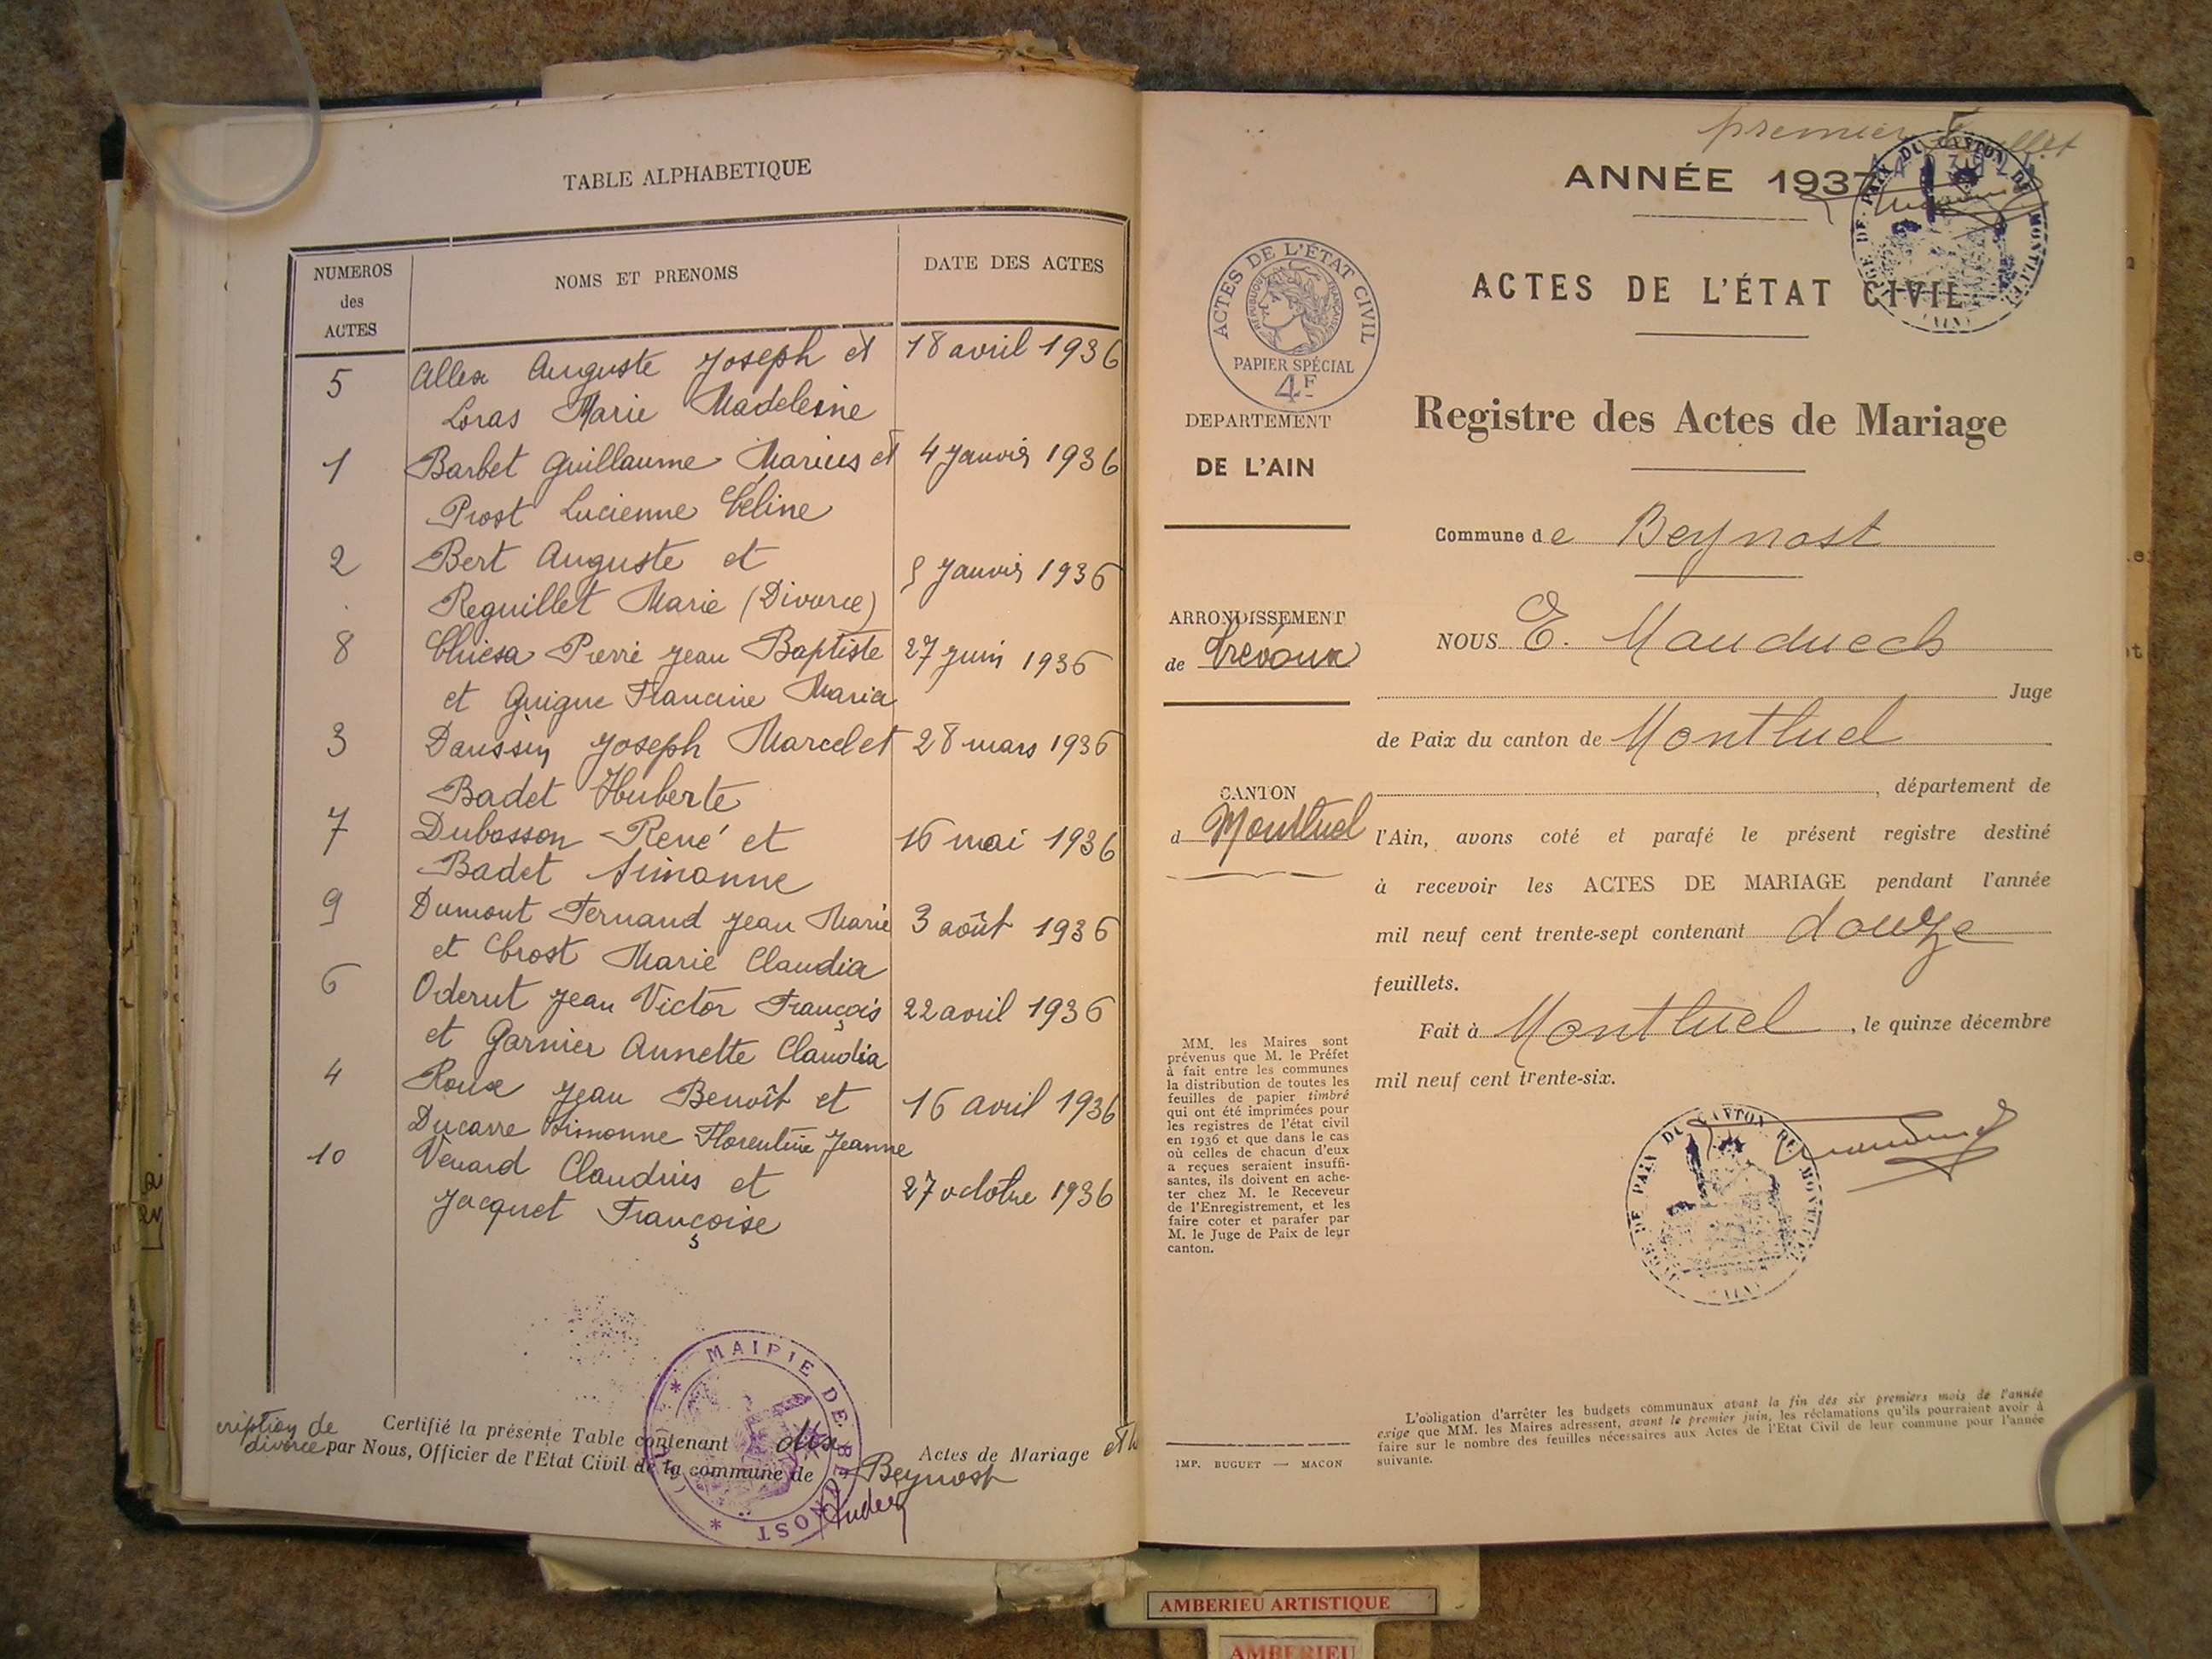 TABLE ALPHABETIQUE
NUMEROS
des
ACTES
NOMS ET PRENOMS
DATE DES ACTES
5 Allex Auguste Joseph et 18 avril 1936
Loras Marie Madeleine
1 Barbet Guillaume Marius et 4 Janvier 1936
Prost Lucienne Céline
2 Bert Auguste et 9 Janvier 1936
Reguillet Marie (Divorce)
8 Chiesa Pierre Jean Baptiste 27 juin 1936
et Guigue Francine Maria
3 Daussin Joseph Marcel et 28 mars 1936
Badet Huberte
7 Dubosson René et 16 mai 1936
Badet Simonne
9 Dumont Fernand Jean Marie 3 août 1936
et Crost Marie Claudia
6 Oderut Jean Victor François 22 avril 1936
et Garnier Annette Claudia
4 Roux Jean Benoît et 16 avril 1936
Ducarre Simonne Florentine Jeanne
10 Venard Claudius et 27 octobre 1936
Jacquet Françoise
Certifié la présente Table contenant dix Actes de Mariage et
cription de
divorce par Nous, Officier de l'Etat Civil de la commune de Beynost
MAIRIE DE BEYNOST
premier feuillet
ANNÉE 1937
JUGE DE PAIX DU CANTON DE MONTLUEL
(AIN)
ACTES DE L'ÉTAT CIVIL
ACTES DE L'ÉTAT CIVIL
REPUBLIQUE FRANÇAISE
PAPIER SPÉCIAL
4F
DEPARTEMENT
DE L'AIN
Registre des Actes de Mariage
Commune de Beynost
ARRONDISSEMENT
de Trévoux
NOUS E. Mauduech
Juge
de Paix du canton de Montluel
CANTON
d Montluel
, département de
l'Ain, avons coté et parafé le présent registre destiné
à recevoir les ACTES DE MARIAGE pendant l'année
mil neuf cent trente-sept contenant douze
feuillets.
Fait à Montluel, le quinze décembre
mil neuf cent trente-six.
MM. les Maires sont
prévenus que M. le Préfet
à fait entre les communes
la distribution de toutes les
feuilles de papier timbré
qui ont été imprimées pour
les registres de l'état civil
en 1936 et que dans le cas
où celles de chacun d'eux
a reçues seraient insuffi-
santes, ils doivent en ache-
ter chez M. le Receveur
de l'Enregistrement, et les
faire coter et parafer par
M. le Juge de Paix de leur
canton.
JUGE DE PAIX DU CANTON DE MONTLUEL
(AIN)
L'obligation d'arrêter les budgets communaux avant la fin des six premiers mois de l'année
exige que MM. les Maires adressent, avant le premier juin, les réclamations qu'ils pourraient avoir à
faire sur le nombre des feuilles nécessaires aux Actes de l'Etat Civil de leur commune pour l'année
suivante.
IMP. BUGUET — MACON
AMBERIEU ARTISTIQUE
AMBERIEU